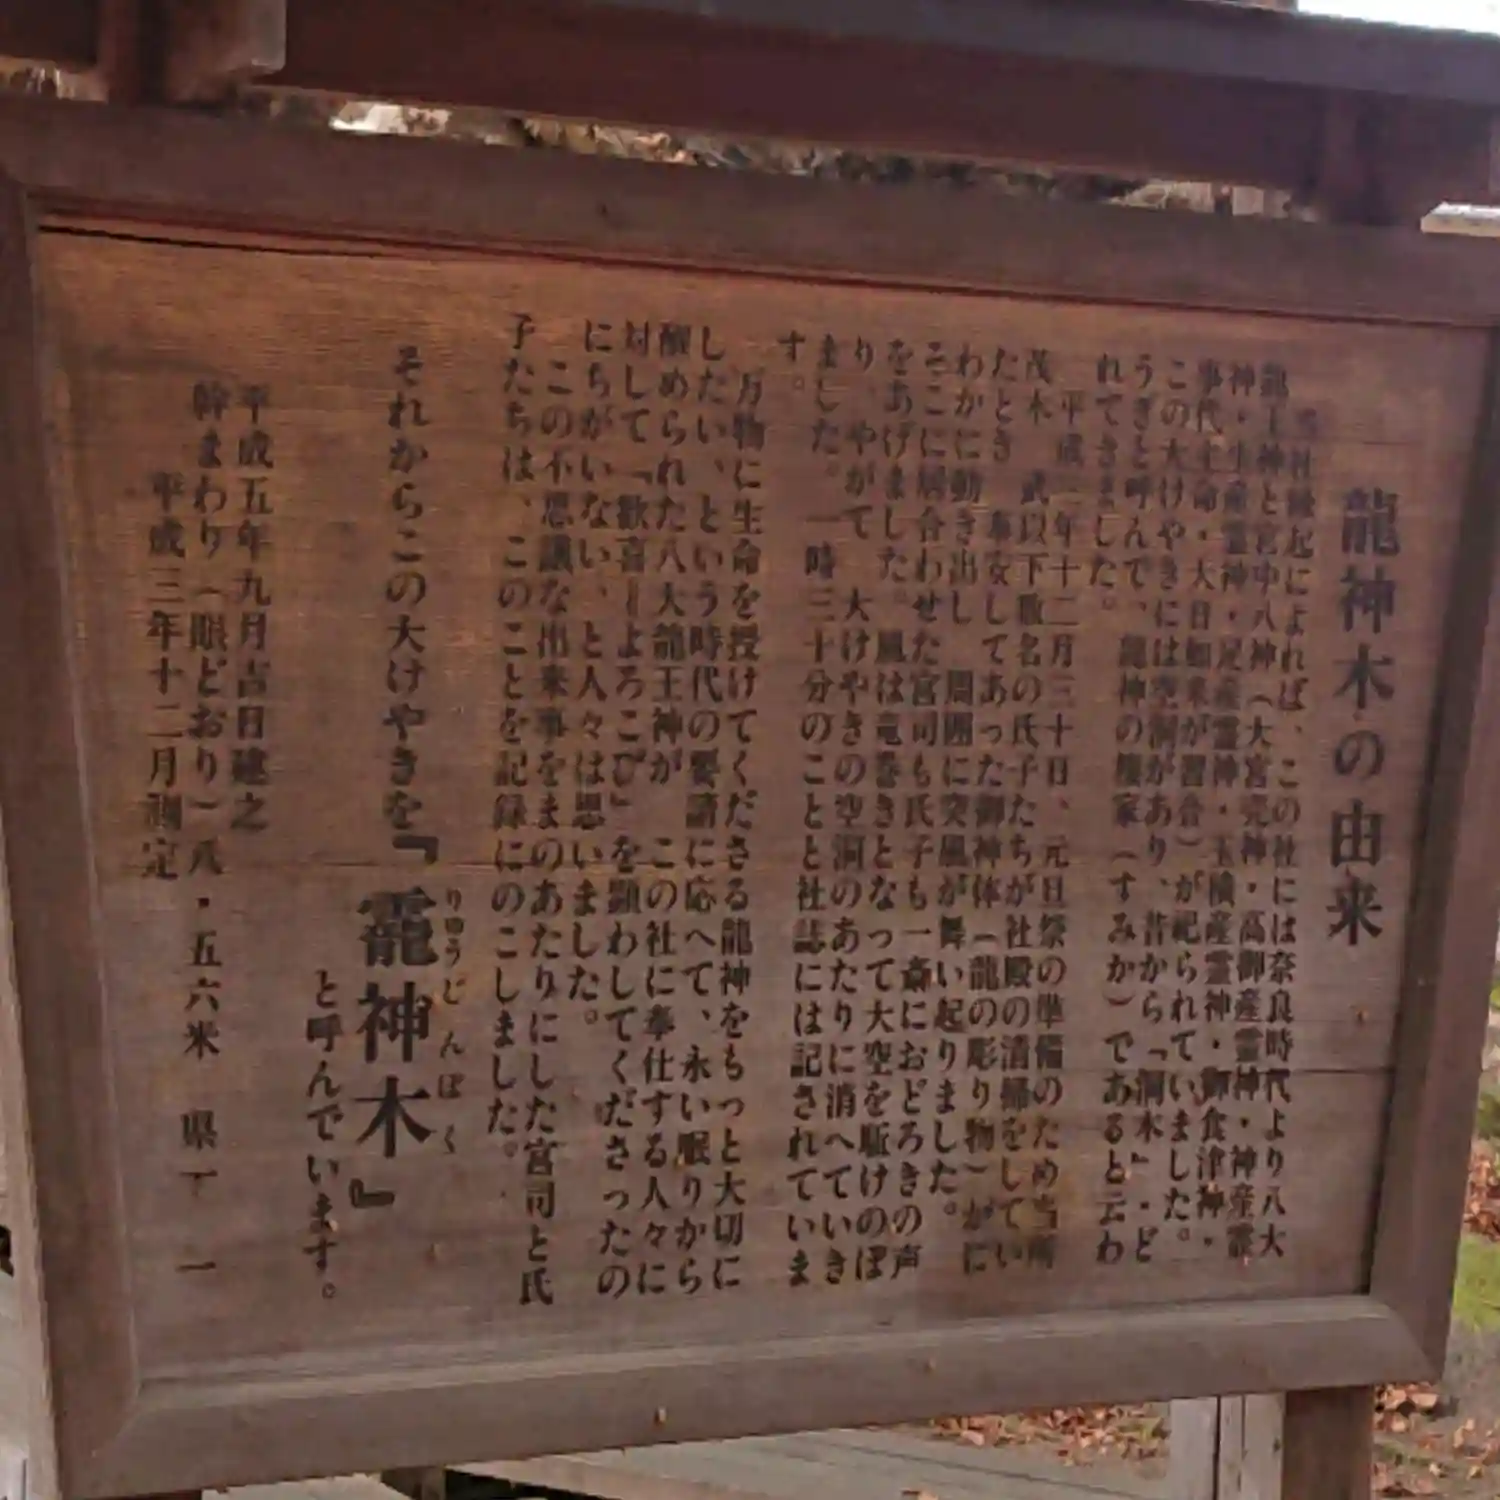 龍神木の由来
当社縁起によれば、この社には奈良時代より八大
龍王神と宮中八神(大宮売神・高御産霊神・神産霊
神・生産霊神・足産霊神・玉積産霊神・御食津神・
事代主命・大日如来が習合)が祀られていました。
この大けやきには空洞があり、昔から「洞木」・ど
うぎと呼んで、龍神の棲家(すみか)であると云わ
れてきました。
平成二年十二月三十日、元旦祭の準備のため当所
茂木 武以下数名の氏子たちが社殿の清掃をしてい
たとき 奉安してあった御神体(龍の彫り物)がに
わかに動き出し 周囲に突風が舞い起りました。
そこに居合わせた宮司も氏子も一斎におどろきの声
をあげました。風は竜巻きとなって大空を駈けのぼ
り、やがて 大けやきの空洞のあたりに消へていき
ました。一時三十分のことと社誌には記されていま
す。
万物に生命を授けてくださる龍神をもっと大切に
したい、という時代の要請に応へて、永い眠りから
醒められた八大龍王神が この社に奉仕する人々に
対して「歓喜ーよろこび」を顕わしてくださったの
にちがいない、と人々は思いました。
この不思議な出来事をまのあたりにした宮司と氏
子たちは、このことを記録にのこしました。
それからこの大けやきを『龗神木』
りゅうじんぼく
と呼んでいます。
平成五年九月吉日建之
幹まわり(眼どおり)八・五六米 県下一
平成三年十二月測定